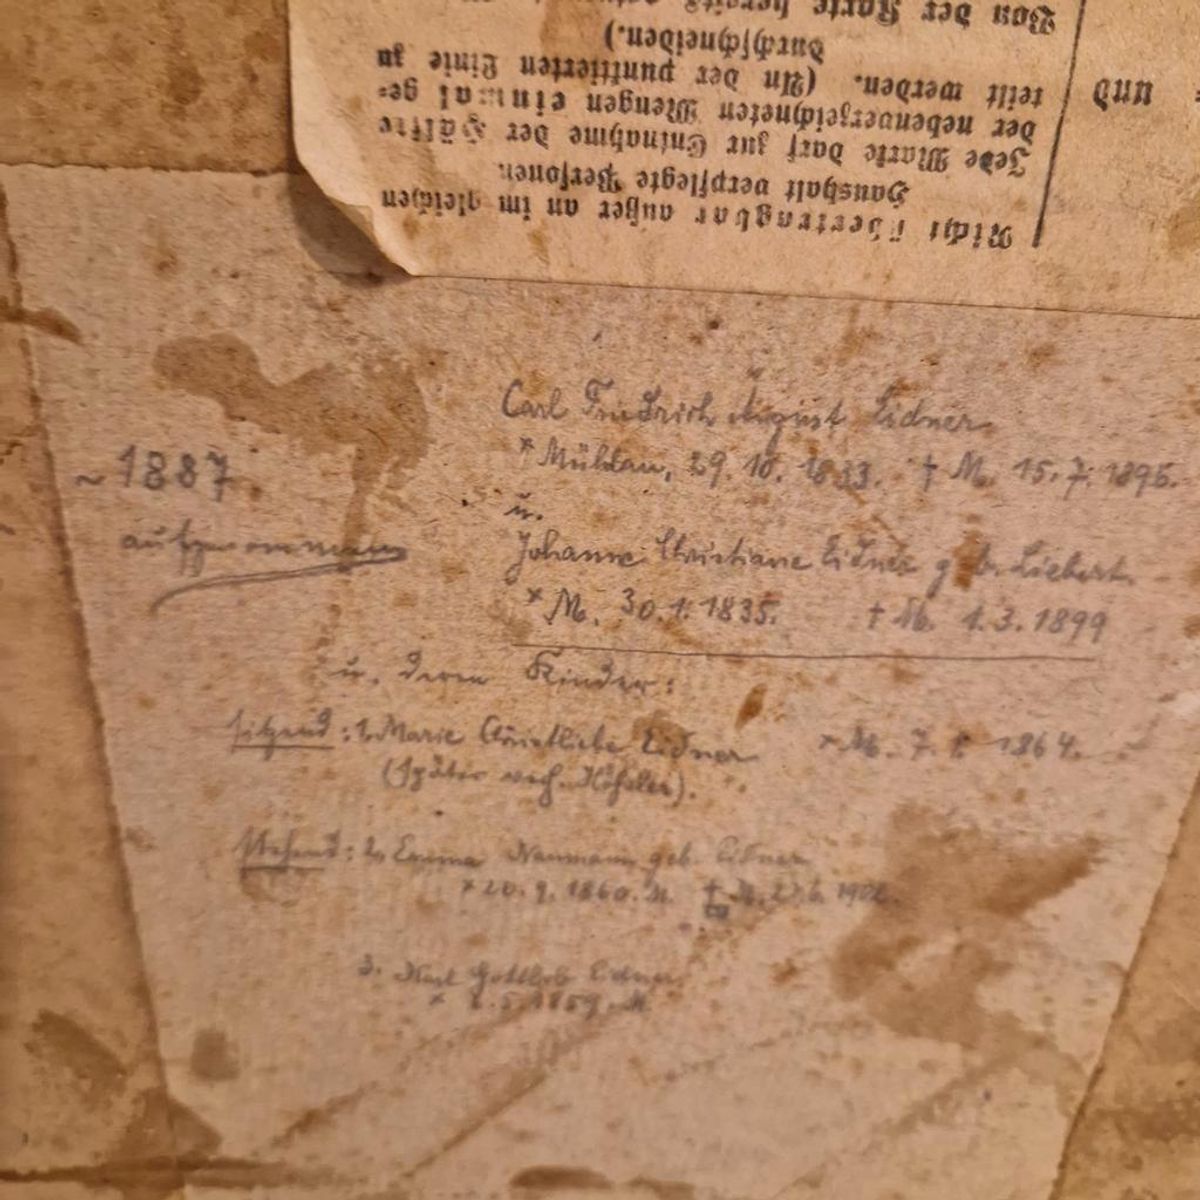 Von der Karte bereits
durchschneiden.)
teilt werden. (An der punktierten Linie zu
der nebenverzeichneten Mengen einmal ge-
Jede Marke darf zur Entnahme der Hälfte
Haushalt verpflegte Personen
Nicht übertragbar außer an im gleichen
und
Carl Friedrich August Eidner
* Mühlau, 29. 10. 1833. † M. 15. 7. 1895.
~ 1887
aufgenommen
u.
Johanne Christiane Eidner geb. Liebert.
* M. 30. 1. 1835. † M. 1. 3. 1899
u. deren Kinder:
sitzend: 1. Marie Christliebe Eidner * M. 7. 1864.
(später verh. Köhler).
stehend: 2. Emma Naumann geb. Eidner
* 20. 9. 1860. M. † M. 6. 1902.
3. Karl Gottlob Eidner
* 2. 5. 1859. M.